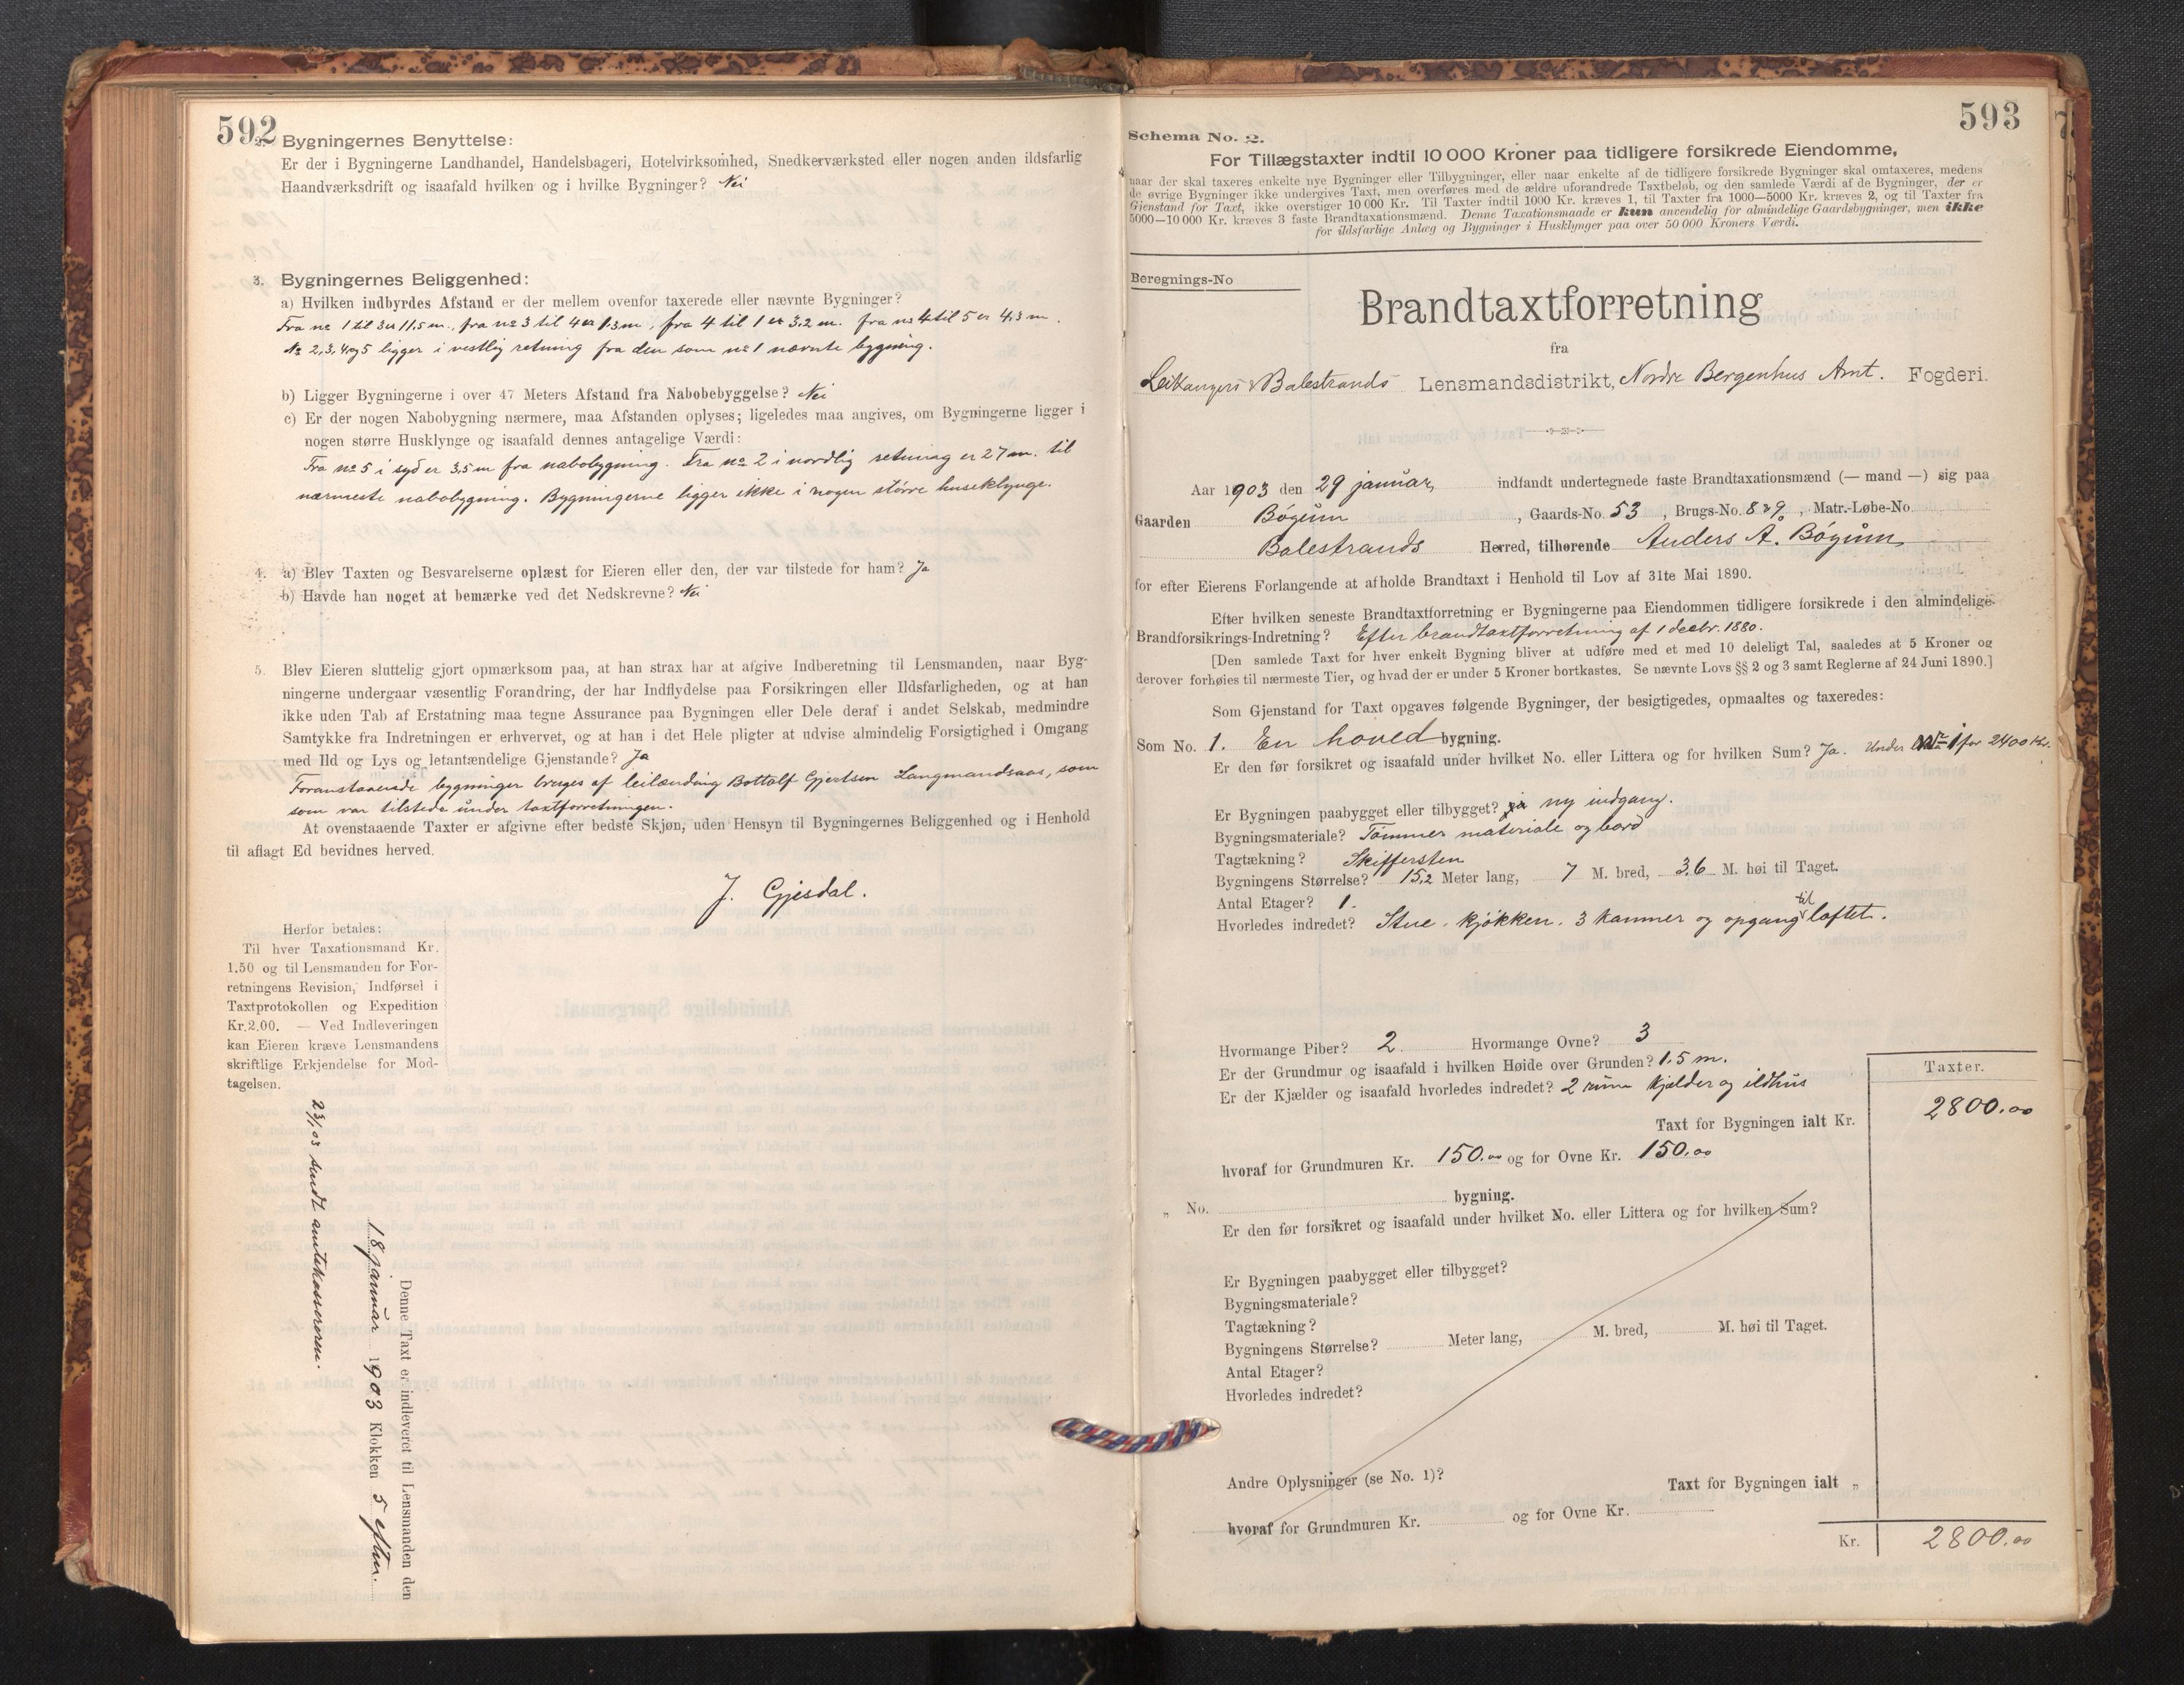 592
2. Bygningernes Benyttelse:
Er der i Bygningerne Landhandel, Handelsbageri, Hotelvirksomhed, Snedkerværksted eller nogen anden ildsfarlig
Haandværksdrift og isaafald hvilken og i hvilke Bygninger? Nei
3. Bygningernes Beliggenhed:
a) Hvilken indbyrdes Afstand er der mellem ovenfor taxerede eller nævnte Bygninger?
Fra no 1 til 3 er 11,5 m., fra no 3 til 4 er 1.3 m, fra 4 til 1 er 3.2 m. fra no 4 til 5 er 4.3 m.
No 2, 3, 4 og 5 ligger i vestlig retning fra den som no 1 nævnte bygning.
b) Ligger Bygningerne i over 47 Meters Afstand fra Nabobebyggelse? Nei
c) Er der nogen Nabobygning nærmere, maa Afstanden oplyses; ligeledes maa angives, om Bygningerne ligger i
nogen større Husklynge og isaafald dennes antagelige Værdi:
Fra no 5 i syd er 3,5 m fra nabobygning. Fra no 2 i nordlig retning er 27 m. til
nærmeste nabobygning. Bygningerne ligger ikke i nogen større huseklynge.
4. a) Blev Taxten og Besvarelserne oplæst for Eieren eller den, der var tilstede for ham? Ja
b) Havde han noget at bemærke ved det Nedskrevne? Nei
5. Blev Eieren sluttelig gjort opmærksom paa, at han strax har at afgive Indberetning til Lensmanden, naar Byg-
ningerne undergaar væsentlig Forandring, der har Indflydelse paa Forsikringen eller Ildsfarligheden, og at han
ikke uden Tab af Erstatning maa tegne Assurance paa Bygningen eller Dele deraf i andet Selskab, medmindre
Samtykke fra Indretningen er erhvervet, og at han i det Hele pligter at udvise almindelig Forsigtighed i Omgang
med Ild og Lys og letantændelige Gjenstande? Ja
Foranstaaende bygninger bruges af leilænding Bottolf Gjertsen Langmandsaas, som
som var tilstede under taxtforretningen.
At ovenstaaende Taxter er afgivne efter bedste Skjøn, uden Hensyn til Bygningernes Beliggenhed og i Henhold
til aflagt Ed bevidnes herved.
J. Gjesdal.
Herfor betales:
Til hver Taxationsmand Kr.
1.50 og til Lensmanden for For-
retningens Revision, Indførsel i
Taxtprotokollen og Expedition
Kr. 2.00. — Ved Indleveringen
kan Eieren kræve Lensmandens
skriftlige Erkjendelse for Mod-
tagelsen.
Denne Taxt er indleveret til Lensmanden den
18 januar 1903 Klokken 5 eftm.
23/1 03 sendt amtskassereren.
593
Schema No. 2.
For Tillægstaxter indtil 10 000 Kroner paa tidligere forsikrede Eiendomme,
naar der skal taxeres enkelte nye Bygninger eller Tilbygninger, eller naar enkelte af de tidligere forsikrede Bygninger skal omtaxeres, medens
de øvrige Bygninger ikke undergives Taxt, men overføres med de ældre uforandrede Taxtbeløb, og den samlede Værdi af de Bygninger, der er
Gjenstand for Taxt, ikke overstiger 10 000 Kr. Til Taxter indtil 1000 Kr. kræves 1, til Taxter fra 1000—5000 Kr. kræves 2, og til Taxter fra
5000—10 000 Kr. kræves 3 faste Brandtaxationsmænd. Denne Taxationsmaade er kun anvendelig for almindelige Gaardsbygninger, men ikke
for ildsfarlige Anlæg og Bygninger i Husklynger paa over 50 000 Kroners Værdi.
Beregnings-No
Brandtaxtforretning
fra
Leikangers & Balestrands Lensmandsdistrikt, Nordre Bergenhus Amt. Fogderi.
Aar 1903 den 29 januar, indfandt undertegnede faste Brandtaxationsmænd (— mand —) sig paa
Gaarden Bøgum, Gaards-No. 53, Brugs-No. 8 & 9, Matr.-Løbe-No
Balestrands Herred, tilhørende Anders A. Bøgum
for efter Eierens Forlangende at afholde Brandtaxt i Henhold til Lov af 31te Mai 1890.
Efter hvilken seneste Brandtaxtforretning er Bygningerne paa Eiendommen tidligere forsikrede i den almindelige
Brandforsikrings-Indretning? Efter brandtaxtforretning af 1 decbr. 1880.
[Den samlede Taxt for hver enkelt Bygning bliver at udføre med et med 10 deleligt Tal, saaledes at 5 Kroner og
derover forhøies til nærmeste Tier, og hvad der er under 5 Kroner bortkastes. Se nævnte Lovs §§ 2 og 3 samt Reglerne af 24 Juni 1890.]
Som Gjenstand for Taxt opgaves følgende Bygninger, der besigtigedes, opmaaltes og taxeredes:
Som No. 1. En hoved bygning.
Er den før forsikret og isaafald under hvilket No. eller Littera og for hvilken Sum? Ja. Under No 1 for 2400 Kr.
Er Bygningen paabygget eller tilbygget? ja ny indgang.
Bygningsmateriale? Tømmer materiale og bord
Tagtækning? Skiffersten
Bygningens Størrelse? 15,2 Meter lang, 7 M. bred, 3.6 M. høi til Taget.
Antal Etager? 1.
Hvorledes indredet? Stue, kjøkken, 3 kammer og opgang til loftet.
Hvormange Piber? 2 Hvormange Ovne? 3
Er der Grundmur og isaafald i hvilken Høide over Grunden? 1.5 m.
Er der Kjælder og isaafald hvorledes indredet? 2 rum kjælder og ildhus
Taxter.
Taxt for Bygningen ialt Kr. 2800.00
hvoraf for Grundmuren Kr. 150.00 og for Ovne Kr. 150.00
„ No. bygning.
Er den før forsikret og isaafald under hvilket No. eller Littera og for hvilken Sum?
Er Bygningen paabygget eller tilbygget?
Bygningsmateriale?
Tagtækning?
Bygningens Størrelse? Meter lang, M. bred, M. høi til Taget.
Antal Etager?
Hvorledes indredet?
Andre Oplysninger (se No. 1)?
Taxt for Bygningen ialt „
hvoraf for Grundmuren Kr. og for Ovne Kr.
Kr. 2800.00